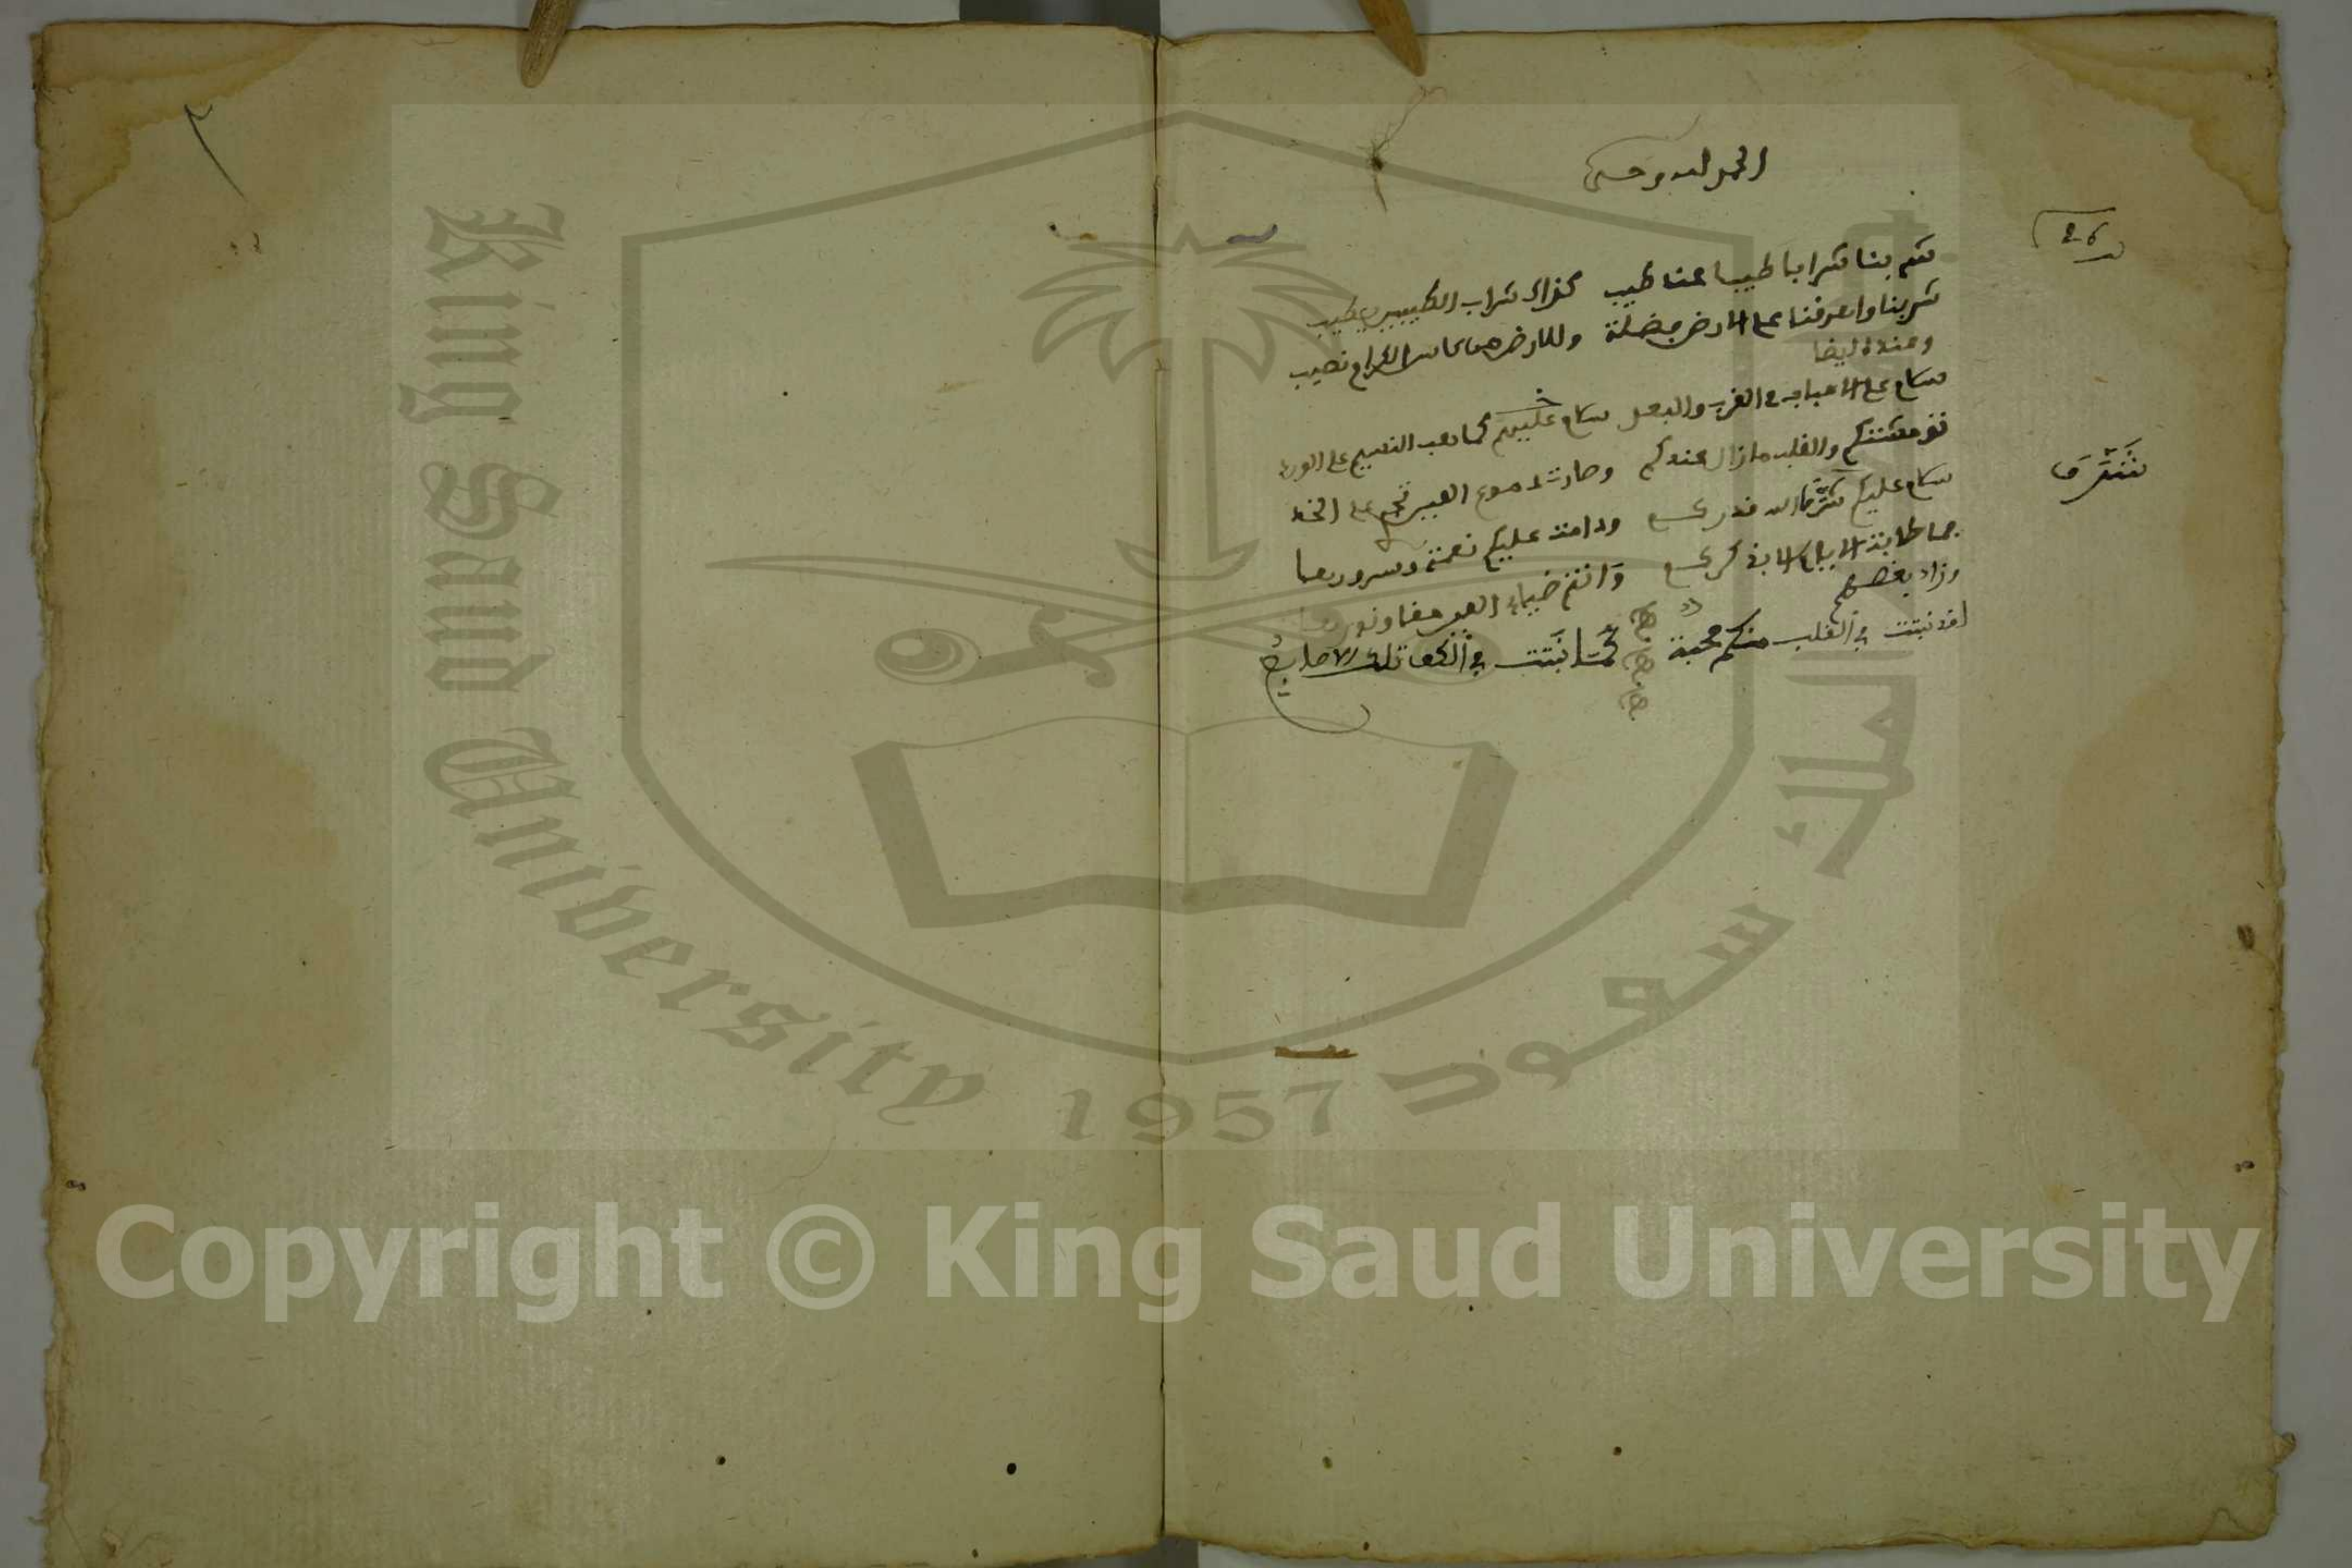 الحمد لله وحده
26
شربنا شرابا طيبا عند طيب كذاك شراب الطيبين يطيب
شربنا واهرقنا على الارض فضلة وللارض من كاس الكرام نصيب
وعنده ايضا
سلام على الاحباب في القرب والبعد سلام عليهم كما دب النسيم على الورد
لئن غبتم والقلب مازال عندكم وصارت دموع العين تجري على الخد
سلام عليكم شرف الله قدركم ودامت عليكم نعمة وسرورها
نتشرف
فما طابت الايام الا بذكركم وانتم ضياء العين حقا ونورها
وزاد بعضهم
لقد نبتت في القلب منكم محبة كما نبتت في الكف تلك الاصابع
٢
King Saud University
1957
جامعة الملك سعود
Copyright © King Saud University